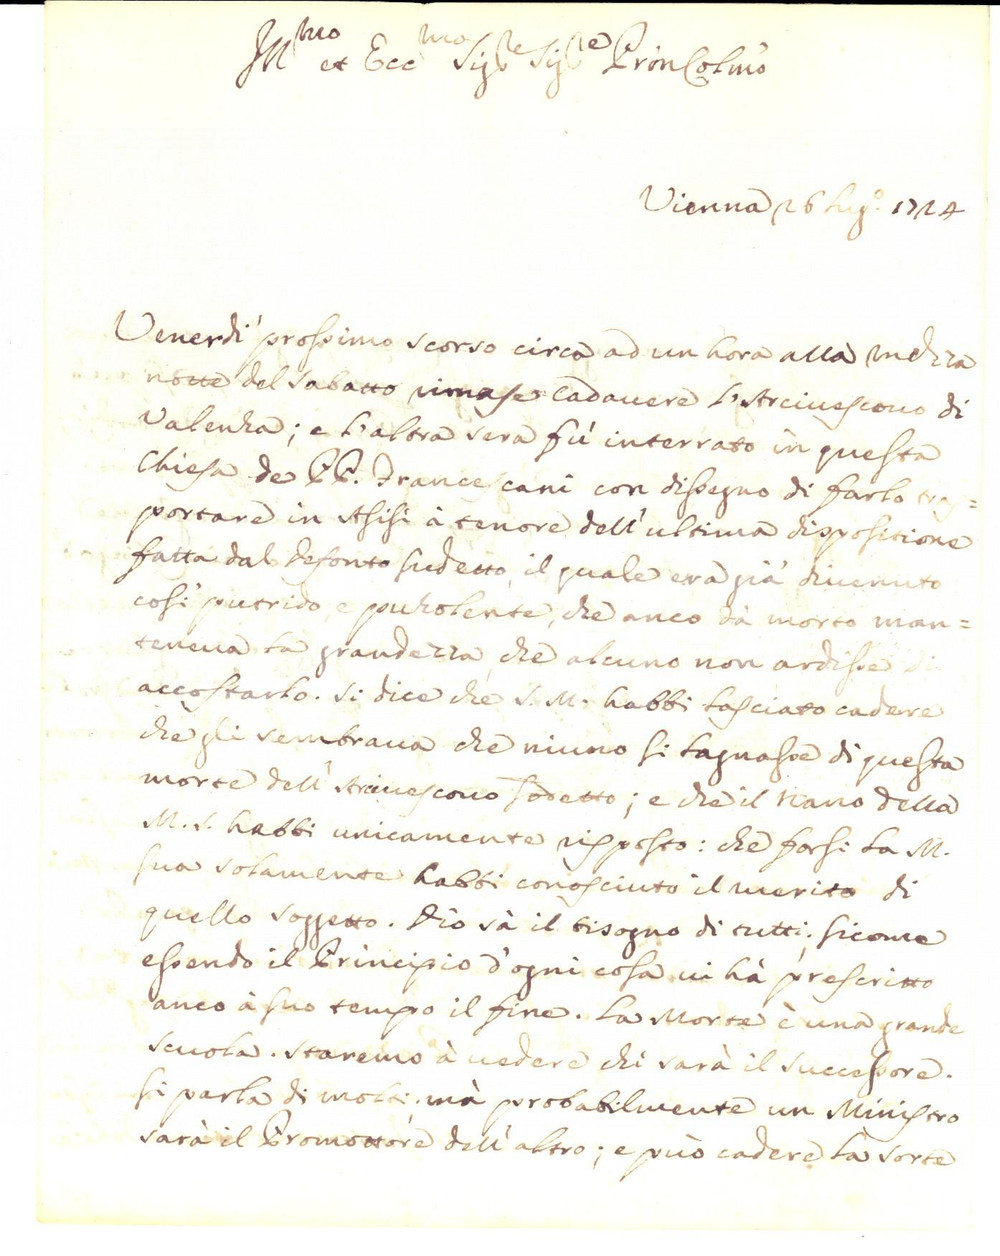 Ill.mo et Ecc.mo Sig.re Sig.re Pron Col.mo
Vienna 26 lug.o 1724
Venerdi' prossimo scorso circa ad un hora alla mezza
notte del sabatto rimase Cadauere l'Arciuescouo di
Valenza; e l'altra sera fù interrato in questa
Chiesa de PP. Francescani con dissegno di farlo tras=
portare in Asisi à tenore dell'ultima dispositione
fatta dal defonto sudetto, il quale era già diuenuto
così putrido, e puzolente, che anco dà morto man=
teneua la grandezza, che alcuno non ardisse di
accostarlo. Si dice che S. M. habbi lasciato cadere
che gli sembraua che niuno si lagnasse di questa
morte dell'Arciuescouo sodetto; e che il Nano della
M. S. habbi unicamente risposto: che forsi la M.
sua solamente habbi conosciuto il merito di
quello soggetto. Dio sà il bisogno di tutti; sicome
essendo il Principio d'ogni cosa ui hà prescritto
anco à suo tempo il fine. La Morte è una grande
scuola. Staremo à uedere chi sarà il successore.
Si parla di molti. mà probabilmente un Ministro
sarà il Promottore dell'altro; e può cadere la sorte